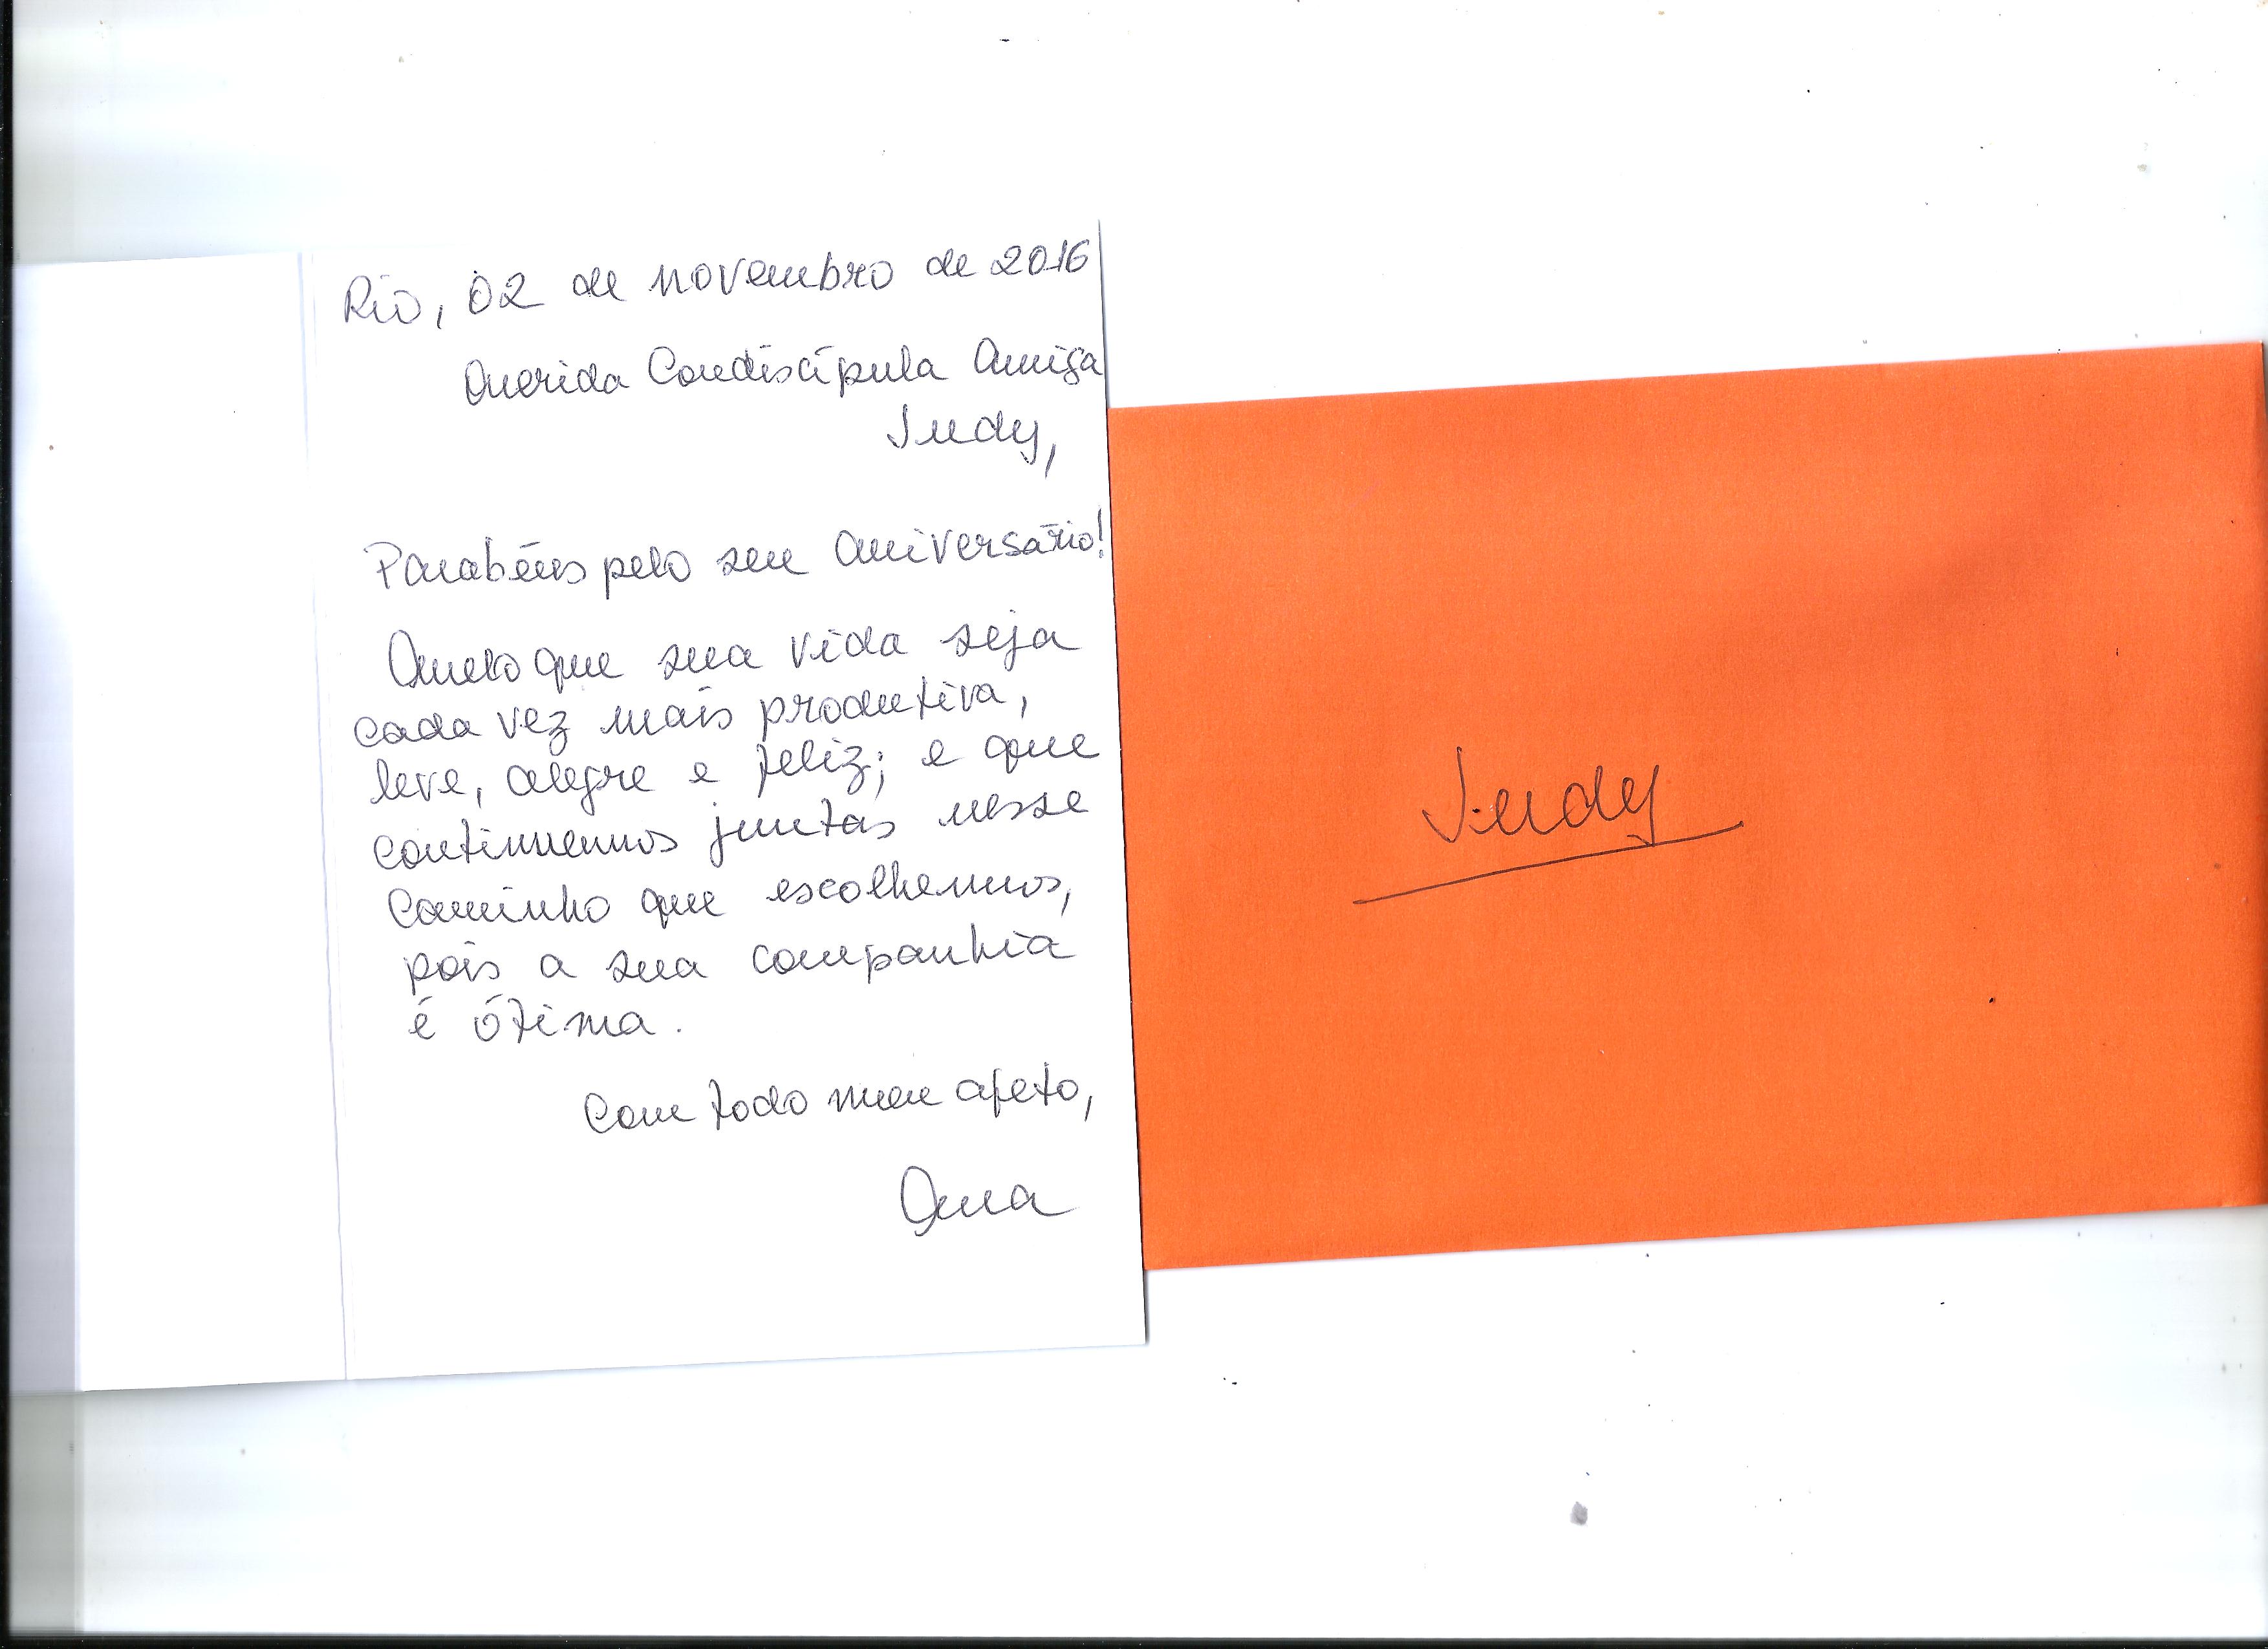 Rio, 02 de novembro de 2016
Querida Condiscípula Amiga
Judy,
Parabéns pelo seu aniversário!
Quero que sua vida seja
cada vez mais produtiva,
leve, alegre e feliz; e que
continuemos juntas nesse
caminho que escolhemos,
pois a sua companhia
é ótima.
Com todo meu afeto,
Ana
Judy